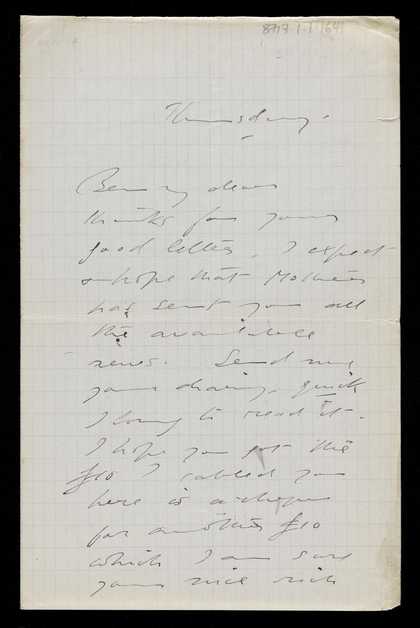 8717.1.1.1641
Thursday.
Ben my dear
thanks for your
good letter, I expect
& hope that Mother
has sent you all
the available
news. Send me
your diary, quick
I long to read it.
I hope you got the
£10 I cabled you
here is a cheque
for another £10
which I am sure
your nice rich